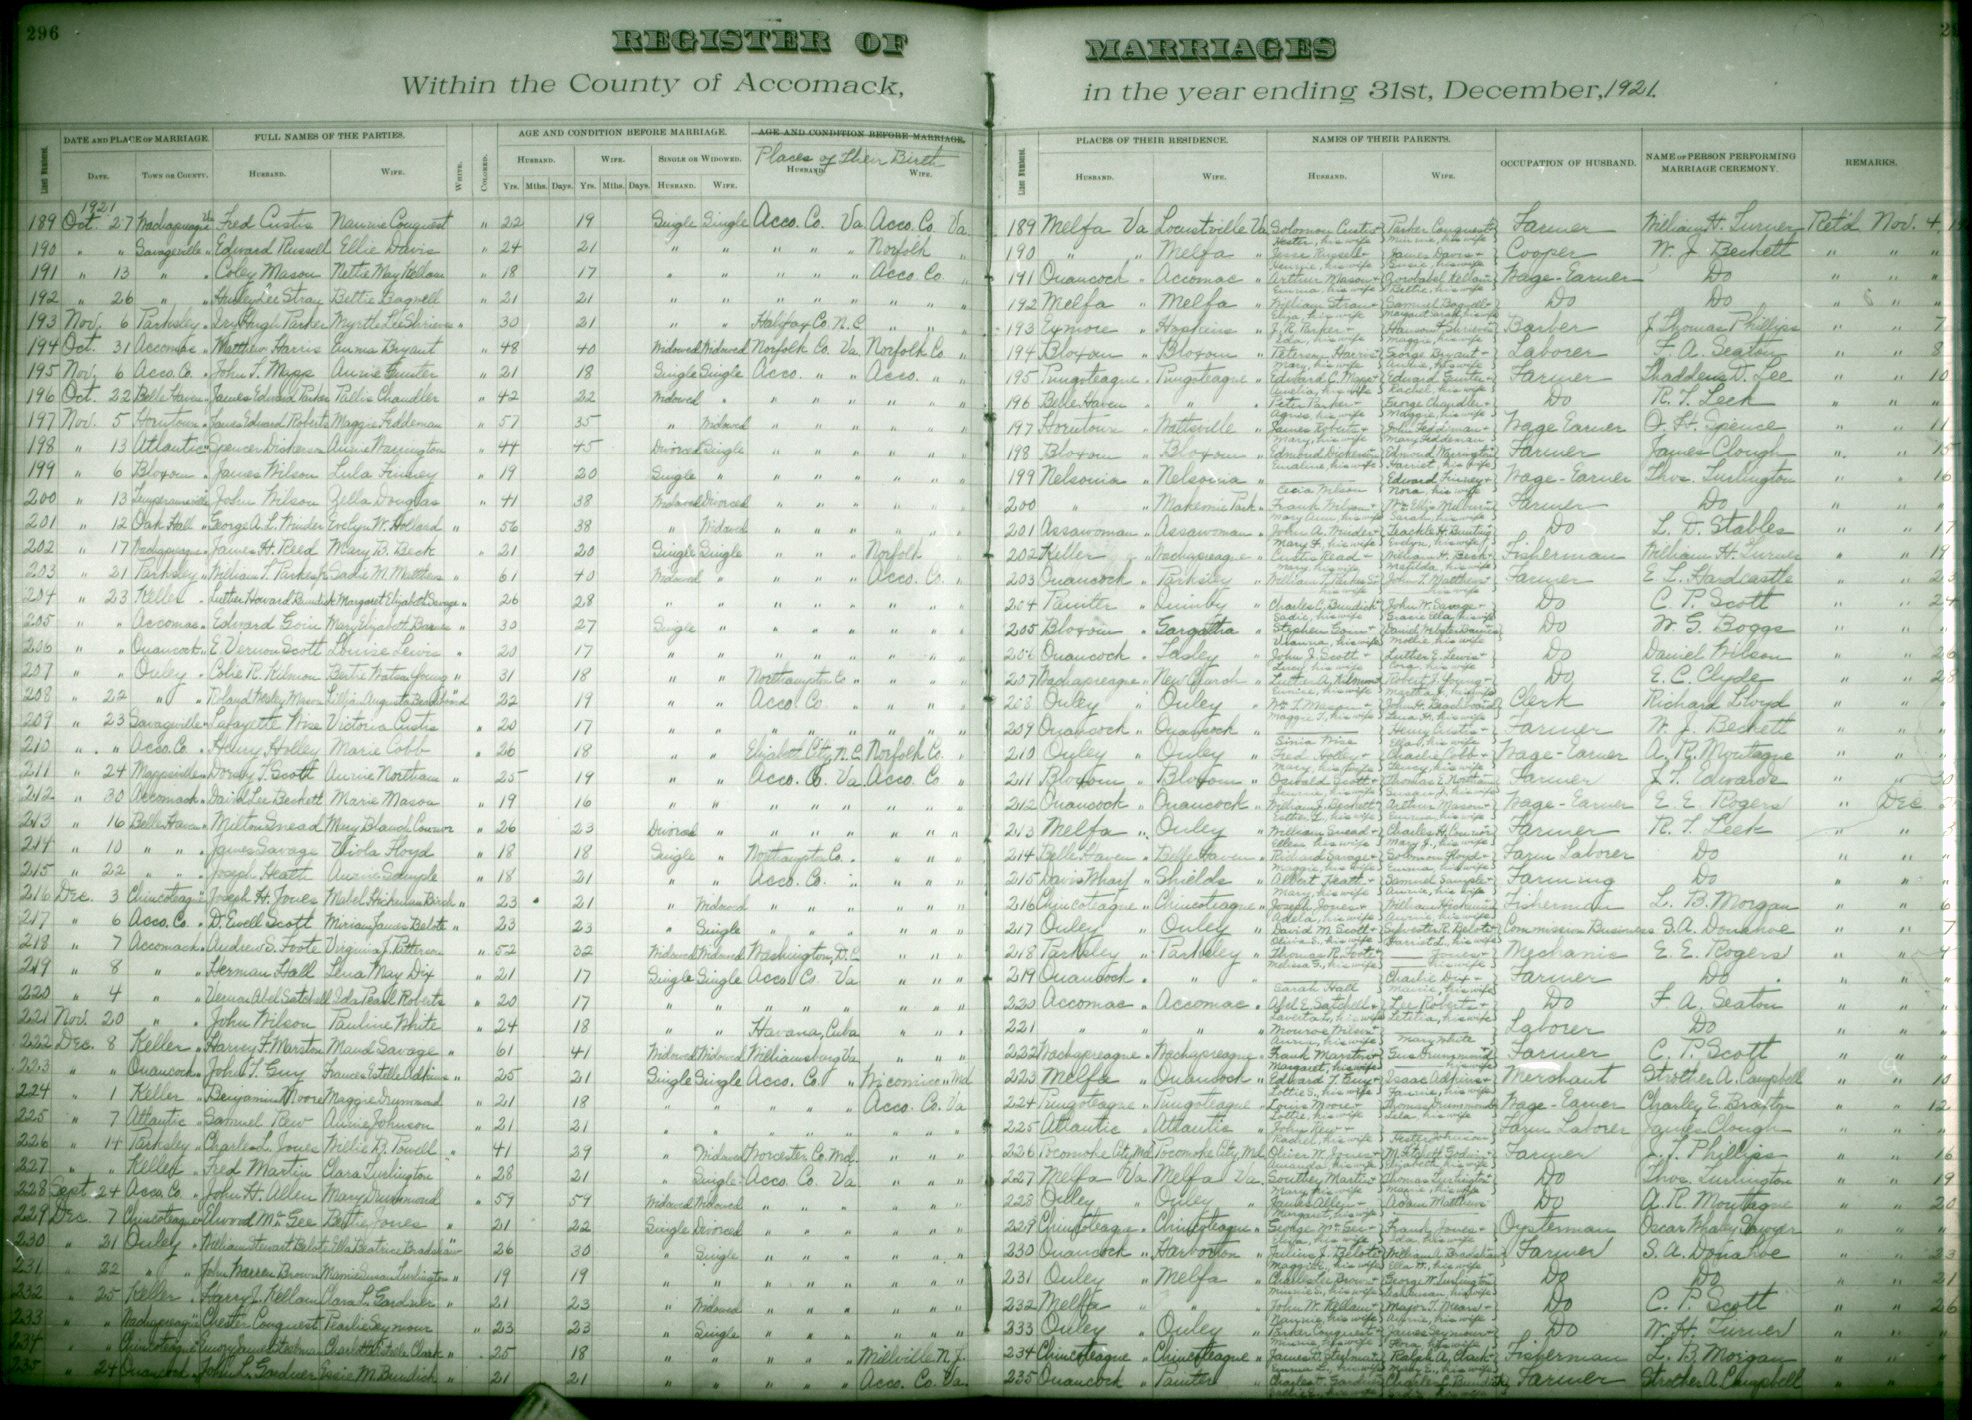 296
REGISTER OF MARRIAGES
Within the County of Accomack, in the year ending 31st, December, 1921.
LINE NUMBERS. DATE AND PLACE OF MARRIAGE. FULL NAMES OF THE PARTIES. WHITE. COLORED. AGE AND CONDITION BEFORE MARRIAGE. AGE AND CONDITION BEFORE MARRIAGE. LINE NUMBERS. PLACES OF THEIR RESIDENCE. NAMES OF THEIR PARENTS. OCCUPATION OF HUSBAND. NAME OF PERSON PERFORMING MARRIAGE CEREMONY. REMARKS.
Places of Their Birth
DATE. TOWN OR COUNTY. HUSBAND. WIFE. HUSBAND. WIFE. SINGLE OR WIDOWED. HUSBAND. WIFE. HUSBAND. WIFE. HUSBAND. WIFE.
Yrs. Mths. Days. Yrs. Mths. Days. HUSBAND. WIFE.
1921
189 Oct. 27 Wachapreague Va Fred Custis Nannie Conquest " 22 19 Single Single Acco. Co. Va Acco. Co. Va. 189 Melfa Va Locustville Va Solomon Custis + Hester, his wife Parker Conquest + Minnie, his wife Farmer William H. Turner Ret'd Nov. 4,
190 " " Savageville " Edward Russell Ellie Davis " 24 21 " " " " " Norfolk " 190 " " Melfa " Jesse Russell + James Davis + Susie, his wife Cooper W. J. Beckett " " "
191 " 13 " " Coley Mason Nettie May Kellam " 18 17 " " " " " Acco. Co. " 191 Onancock " Accomac " Arthur Mason + Emma, his wife Bettie, his wife Wage-Earner Do " " "
192 " 26 " " Hurley Lee Stray Bettie Bagwell " 21 21 " " " " " " " " 192 Melfa " Melfa " Eliza, his wife Samuel Bagwell + Margaret Sarah, his wife Do Do " " "
193 Nov. 6 Parksley " Ira Hugh Parker Myrtle Lee Shrieves " 30 21 " " Halifax Co. N. C. " " " 193 Exmore " Hopkins " J. R. Parker + Eda, his wife Maggie, his wife Barber J. Thomas Phillips " " 7
194 Oct. 31 Accomac " Matthew Harris Emma Bryant " 48 40 Widowed Widowed Norfolk Co. Va Norfolk Co. " 194 Bloxom " Bloxom " Peterson Harris + Mary, his wife George Bryant + Annie, his wife Laborer F. A. Seaton " " 8
195 Nov. 6 Acco. Co. " John T. Mapp Annie Gunter " 21 18 Single Single Acco. " " Acco. " " 195 Pungoteague " Pungoteague " Edward C. Mapp + Edward Gunter + Rachel, his wife Farmer Thaddeus D. Lee " " 10
196 Oct. 22 Belle Haven " James Edward Parker Pallie Chandler " 42 22 Widowed " " " " " " " 196 Belle Haven " " " Peter Parker + Agnes, his wife George Chandler + Maggie, his wife Do R. T. Leek " " "
197 Nov. 5 Horntown " James Edward Roberts Maggie Feddeman " 57 35 " Widowed " " " " " " 197 Horntown " Wattsville " James Roberts + Mary, his wife John Feddeman + Mary Feddeman Wage Earner O. H. Spence " " 11
198 " 13 Atlantic " Spencer Dickerson Annie Warrington " 44 45 Divorced Single " " " " " " 198 Bloxom " Bloxom " Edmond Dickerson + Emaline, his wife Edmond Warrington + Harriet, his wife Farmer James Clough " " 15
199 " 6 Bloxom " James Wilson Lula Finney " 19 20 Single " " " " " " " 199 Nelsonia " Nelsonia " Wilson Edward Finney + Nora, his wife Wage-Earner Thos. Turlington " " 16
200 " 13 Temperanceville John Wilson Zella Douglas " 41 38 Widowed Divorced " " " " " " 200 " " Makemie Park " Frank Wilson + Mary Ann, his wife Sarah, his wife Farmer Do " " "
201 " 12 Oak Hall " George A. L. Winder Evelyn W. Holland " 56 38 " Widowed " " " " " " 201 Assawoman " Assawoman " John A. Winder + Mary F., his wife Teackle H. Bunting + Evelyn, his wife Do L. D. Stables " " 17
202 " 17 Wachapreague " James H. Reed Mary B. Beck " 21 20 Single Single " " " Norfolk " 202 Keller " Wachapreague " Custis Read + Mary, his wife William H. Beck + Matilda, his wife Fisherman William H. Turner " " 19
203 " 21 Parksley " William T. Parkes Sr Sadie M. Matthews " 61 40 Widowed " " " " Acco. Co. " 203 Onancock " Parksley " William T. Parkes Sr + his wife John T. Matthews + his wife Farmer E. L. Hardcastle " " 23
204 " 23 Keller " Luther Howard Bundick Margaret Elizabeth Savage " 26 28 " " " " " " " " 204 Painter " Quinby " Charles C. Bundick + Sadie, his wife John W. Savage + Gracie Ella, his wife Do C. P. Scott " " 24
205 " " Accomac " Edward Goin Mary Elizabeth Barnes " 30 27 Single " " " " " " " 205 Bloxom " Gargatha " Stephen Goin + his wife Daniel Webster Barnes + Mollie, his wife Do W. G. Boggs " " "
206 " " Onancock " E. Vernon Scott Louise Lewis " 20 17 " " " " " " " " 206 Onancock " Tasley " John J. Scott + Lucy, his wife Luther E. Lewis + Cora, his wife Do Daniel Wilson " " 26
207 " " Onley " Colie R. Kilmon Bertie Watson Young " 31 18 " " Northampton Co " " " " 207 Wachapreague " New Church " Luther A. Kilmon + Eunice, his wife Robert J. Young + Martha J., his wife Do E. C. Clyde " " 28
208 " 22 " " Roland Wesley Mason Lillie Augusta Beachboard " 22 19 " " Acco. Co. " " " " 208 Onley " Onley " Wm. T. Mason + Maggie T., his wife John H. Beachboard + Lena H., his wife Clerk Richard Lloyd " " "
209 " 23 Savageville " Lafayette Wise Victoria Custis " 20 17 " " " " " " " " 209 Onancock " Onancock " Sinia Wise Henry Custis + Ella, his wife Farmer W. J. Beckett " " "
210 " " Acco. Co. " Henry Holley Marie Cobb " 26 18 " " Elizabeth City, N. C. Norfolk Co. " 210 Onley " Onley " Fred Holley + Mary, his wife Charlie Cobb + his wife Wage-Earner A. R. Montague " " "
211 " 24 Mappsville " Dorsey T. Scott Annie Northam " 25 19 " " Acco. Co. Va. Acco. Co " 211 Bloxom " Bloxom " Oswald Scott + Jennie, his wife Thomas E. Northam + Susan J., his wife Farmer J. T. Edwards " " 30
212 " 30 Accomack " David Lee Beckett Marie Mason " 19 16 " " " " " " " " 212 Onancock " Onancock " William J. Beckett + Esther L., his wife Arthur Mason + Emma, his wife Wage-Earner E. E. Rogers " Dec
213 " 16 Belle Haven " Milton Snead Mary Blanch Connor " 26 23 Divorced " " " " " " " 213 Melfa " Onley " William Snead + Ellen, his wife Charles H. Connor + Mary J., his wife Farmer R. T. Leek " "
214 " 10 " " James Savage Viola Floyd " 18 18 Single " Northampton Co. " " " " 214 Belle Haven " Belle Haven " Richard Savage + Maggie, his wife Solomon Floyd + Emma, his wife Farm Laborer Do " " "
215 " 22 " " Joseph Heath Annie Sample " 18 21 " " Acco. Co. " " " " 215 Davis Wharf " Shields " Albert Heath + Mary, his wife Samuel Sample + Annie, his wife Farming Do " " "
216 Dec. 3 Chincoteague " Joseph H. Jones Mabel Hickman Birch " 23 21 " Widowed " " " " " " 216 Chincoteague " Chincoteague " Joseph Jones + Adela, his wife William Hickman + Annie, his wife Fisherman L. B. Morgan " " 6
217 " 6 Acco. Co. " D. Ewell Scott Miriam James Belote " 23 23 " Single " " " " " " 217 Onley " Onley " David M. Scott + Olivia S., his wife Sylvester R. Belote + Harriet L., his wife Commission Business S. A. Donahoe " " 7
218 " 7 Accomack " Andrew S. Foote Virginia J. Patterson " 52 32 Widowed Widowed Washington, D. C. " " " 218 Parksley " Parksley " Thomas R. Foote + Melissa S., his wife Jones + his wife Mechanic E. E. Rogers " " "
219 " 8 " " Herman Hall Lena May Dix " 21 17 Single Single Acco. Co. Va " " " 219 Onancock " " " Sarah Hall Charlie Dix + his wife Farmer Do " " "
220 " 4 " " Vernon Abel Satchell Ida Pearl Roberts " 20 17 " " " " " " " " 220 Accomac " Accomac " Abel E. Satchell + his wife Lee Roberts + Letitia, his wife Do F. A. Seaton " " "
221 Nov. 20 " " John Wilson Pauline White " 24 18 " " Havana, Cuba " " " 221 " " " " Monroe Wilson + Annie, his wife Mary White Laborer Do " " "
222 Dec. 8 Keller " Harvey F. Marston Maud Savage " 61 41 Widowed Widowed Williamsburg Va. " " " 222 Wachapreague " Wachapreague " Frank Marston + Margaret, his wife Gus Drummond + his wife Farmer C. P. Scott " " "
223 " " Onancock " John T. Guy Frances Estelle Adkins " 25 21 Single Single Acco. Co. " Wicomico " Md 223 Melfa " Onancock " Edward T. Guy + Lottie S., his wife Isaac Adkins + Fannie, his wife Merchant Strother A. Campbell " " 10
224 " 1 Keller " Benjamin Moore Maggie Drummond " 21 18 " " " " " Acco. Co. Va 224 Pungoteague " Pungoteague " Louis Moore + Lottie, his wife Thomas Drummond + Lela, his wife Wage-Earner Charley E. Braxton " " 12
225 " 7 Atlantic " Samuel Rew Annie Johnson " 21 21 " " " " " " " " 225 Atlantic " Atlantic " John Rew + Rachel, his wife Hester Johnson Farm Laborer James Clough " " "
226 " 14 Parksley " Charles L. Jones Nellie B. Powell " 41 29 " Widowed Worcester Co. Md. " " " 226 Pocomoke City, Md Pocomoke City, Md Oliver W. Jones + Amanda, his wife M. Godwin + Elizabeth, his wife Farmer J. T. Phillips " " 16
227 " " Keller " Fred Martin Clara Turlington " 28 21 " Single Acco. Co. Va " " " 227 Melfa Va Melfa Va. Southey Martin + Mary, his wife Thomas Turlington + his wife Do Thos. Turlington " " 19
228 Sept. 24 Acco. Co. " John H. Allen Mary Drummond " 59 59 Widowed Widowed " " " " " " 228 Onley " Onley " James Allen + Margaret, his wife Adam Matthews Do A. R. Montague " " 20
229 Dec. 7 Chincoteague " Elwood McGee Bettie Jones " 21 22 Single Divorced " " " " " " 229 Chincoteague " Chincoteague " George McGee + Eliza, his wife Frank Jones + Ida, his wife Oysterman Oscar Whaley Sawyer " " "
230 " 21 Onley " William Stewart Belote Ella Beatrice Bradshaw " 26 30 " Single " " " " " " 230 Onancock " Harborton " Julius J. Belote + Maggie, his wife William A. Bradshaw + Ella W., his wife Farmer S. A. Donahoe " " 23
231 " 22 " " John Warren Brown Mamie Susan Turlington " 19 19 " " " " " " " " 231 Onley " Melfa " Charles Lee Brown + Minnie S., his wife George W. Turlington + his wife Do Do " " 21
232 " 25 Keller " Harry J. Kellam Clara L. Gardner " 21 23 " Widowed " " " " " " 232 Melfa " " " John W. Kellam + Nannie, his wife Major T. Mears + Annie, his wife Do C. P. Scott " " 26
233 " " Wachapreague " Chester Conquest Pearlie Seymour " 23 23 " Single " " " " " " 233 Onley " Onley " Parker Conquest + Minnie, his wife James Seymour + Flora, his wife Do W. H. Turner " " "
234 " " Chincoteague " Emory James Steelman Charlotte Estelle Clark " 25 18 " " " " " Millville N. J. 234 Chincoteague " Chincoteague " James T. Steelman + Emma L., his wife Ralph A. Clark + Mary E., his wife Fisherman L. B. Morgan " " "
235 " 24 Onancock " John L. Gardner Essie M. Bundick " 21 21 " " " " " Acco. Co. Va. 235 Onancock " Painter " Charles T. Gardner Charles C. Bundick Farmer Strother A. Campbell " " "